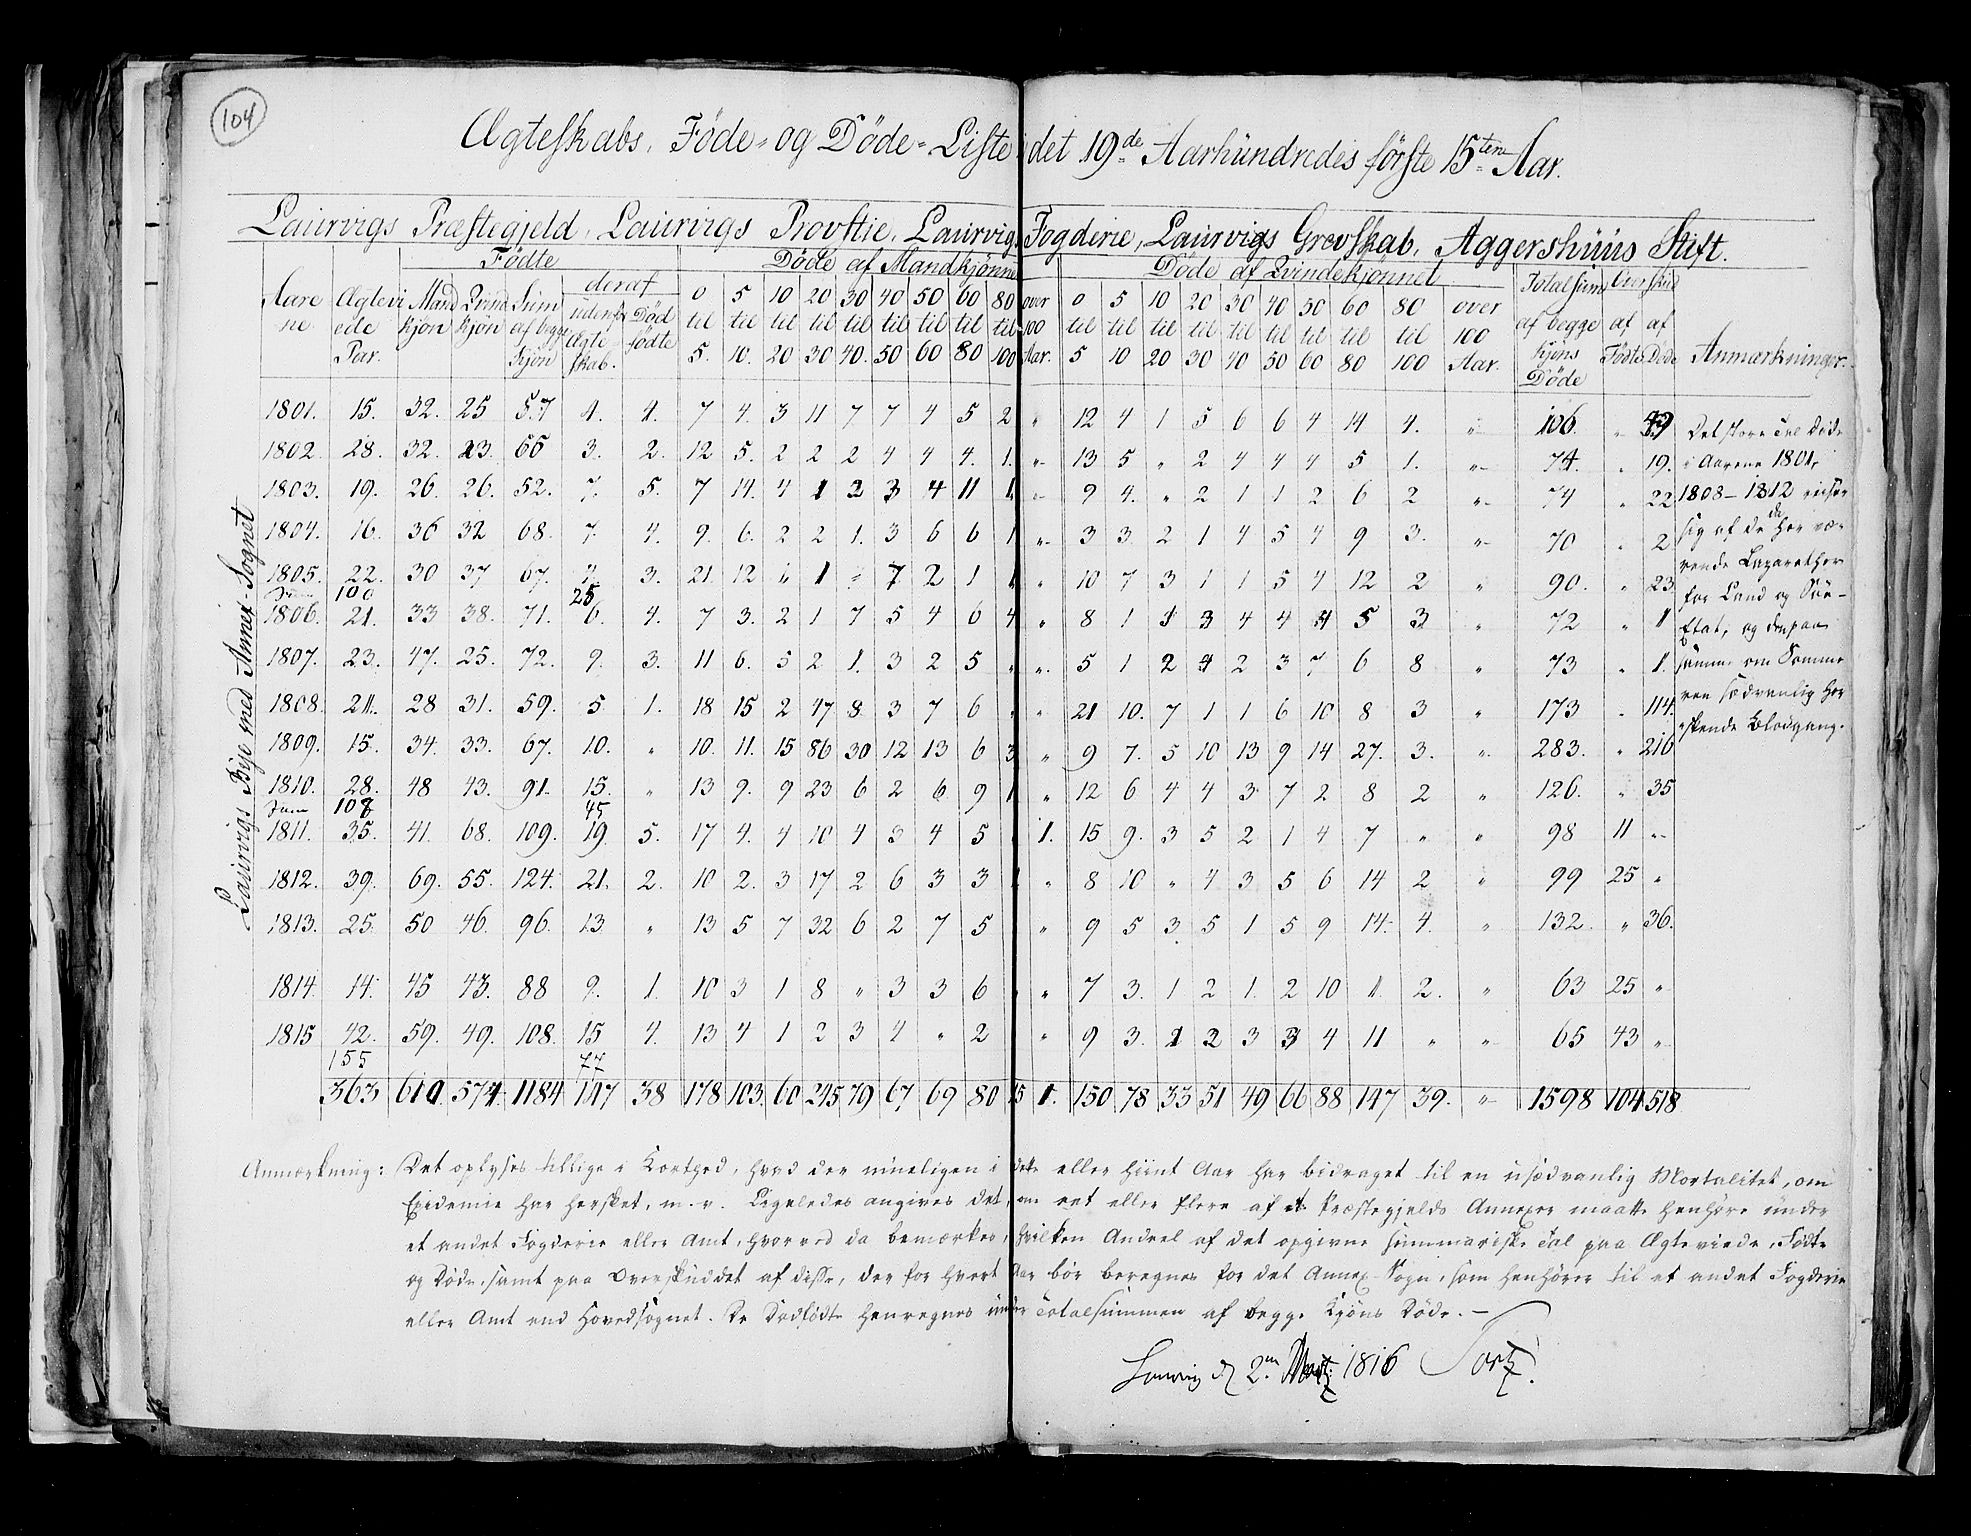 104
Ægteskabs, Föde- og Döde-Liste i det 19de Aarhundredes förste 15ten Aar.
Laurvigs Præstegjeld, Laurvigs Provstie, Laurvigs Fogderie, Laurvigs Grevskab, Aggershuus Stift.
Födte Döde af Mandkjönnet Döde af Qvindekjönnet
Aarene Ægteviede Par. Mandkjön Qvindekjön Sum af begge Kjön deraf udenfor Ægteskab. Dödfödte 0 til 5. 5 til 10. 10 til 20 20 til 30 30 til 40. 40 til 50 50 til 60 60 til 80 80 til 100 over 100 Aar. 0 til 5 5 til 10 10 til 20 20 til 30 30 til 40 40 til 50 50 til 60 60 til 80 80 til 100 over 100 Aar. Totalsum af begge Kjöns Döde Overskud af Födte af Döde Anmærkninger.
Laurvigs Bye med Annex-Sognet
1801. 15. 32. 25 57 4. 4. 7 4. 3 11 7 7 4 5 2 " 12 4 1 5 6 6 4 14 4. " 106. " 49
1802. 28. 32. 23. 55 3. 2. 12 5. 2 2 2 4 4 4. 1. " 13 5 " 2 4 4 4 5 1. " 74. " 19.
1803. 19. 26. 26. 52. 7. 5. 7 14. 4 1 2 3 4 11 1 " 9 4. " 2 1 1 2 6 2 " 74 " 22
1804. 16. 36 32 68. 7. 4. 9. 6. 2 2 1. 3 6 6 1 " 3 3 2 1 4 5 4 9 3. " 70 " 2
1805. 22. 30 37 67. 4. 3. 21. 12 " 1 " 7 2 1 1 " 10 7 3 1 1 5 4 12 2 " 90. " 23
Sum 100 25
1806. 21. 33 38. 71. 6. 4. 7 3. 2 1 7 5 4 6 4 " 8 1 1 3 4 4 4 5 3 " 72 " 1
1807. 23. 47. 25. 72. 9. 3. 11 6. 5 2 1. 3 2 5 " " 5 1 2 4 2 3 7 6 8 " 73 " 1.
1808. 21. 28 31. 59. 5 1. 18 15 2 47 8 3 7 6 " " 21 10. 7 1 1 6 10 8 3 " 173 " 114.
1809. 15. 34. 33. 67. 10. " 10. 11. 15 86 30 12 13 6 3 " 9 7. 5 10 13 9 14 27. 3. " 283. " 216
1810. 28. 48 43. 91. 15. " 13 9. 9 23 6 2 6 9 1 " 12 6 4 4 3 7 2 8 2 " 126. " 35
Sum 108 45
1811. 35. 41. 68. 109. 19 5. 17 4. 4 10 4 3 4 5 " 1. 15 9. 3 5 2 1 4 7 " " 98 11 "
1812. 39. 69. 55. 124. 21. 2. 10 2. 3 17 2 6 3 3 1 " 8 10 " 4 3 5 6 14 2 " 99 25 "
1813. 25. 50 46. 96. 13. " 13 5 7 32 6 2 7 5 " 9 5 3 5 1 5 9 14. 4. " 132. " 36.
1814. 14. 45 43. 88 9. 1. 10 3 1 8 " 3 3 6 " " 7 3. 1 2 1. 2 10 1. 2. " 63 25 "
1815 42. 59. 49. 108. 15 4. 13 4 1 2 3 4 " 2 " 9 3. 1 2 3 3 4 11 " " 65 43 "
155 77
363 610 574. 1184 147 38 178 103. 60 245 79 67 69 80 15 1. 150 78 33 51 49 66 88 147 39. " 1598 104 518
Det store Tal Döde
i Aarene 1801,
1808-1812 reiser
sig af de da her væ-
rende Lazarether
for Land og Söe-
Etat, og den paa
samme om Somme
ren sædvanlig her
skende Blodgang.
Anmærkning: Det oplyses tillige i Korthed, hvad der rimeligen i dette eller hiint Aar har bidraget til en usædvanlig Mortalitet, om
Epidemie har hersket, m. v. Ligeledes angives det, om eet eller flere af et Præstegjelds Annexer maatte henhöre under
et andet Fogderie eller Amt, hvorved da bemærkes, hvilken Andeel af det opgivne summariske Tal paa Ægteviede, Födte
og Döde, samt paa Overskuddet af disse, der for hvert Aar bör beregnes for det Annex-Sogn, som henhörer til et andet Fogderie
eller Amt end Hovedsognet. De Dödfödte henregnes under Totalsummen af begge Kjöns Döde. -
Laurvig d. 2en Martz 1816